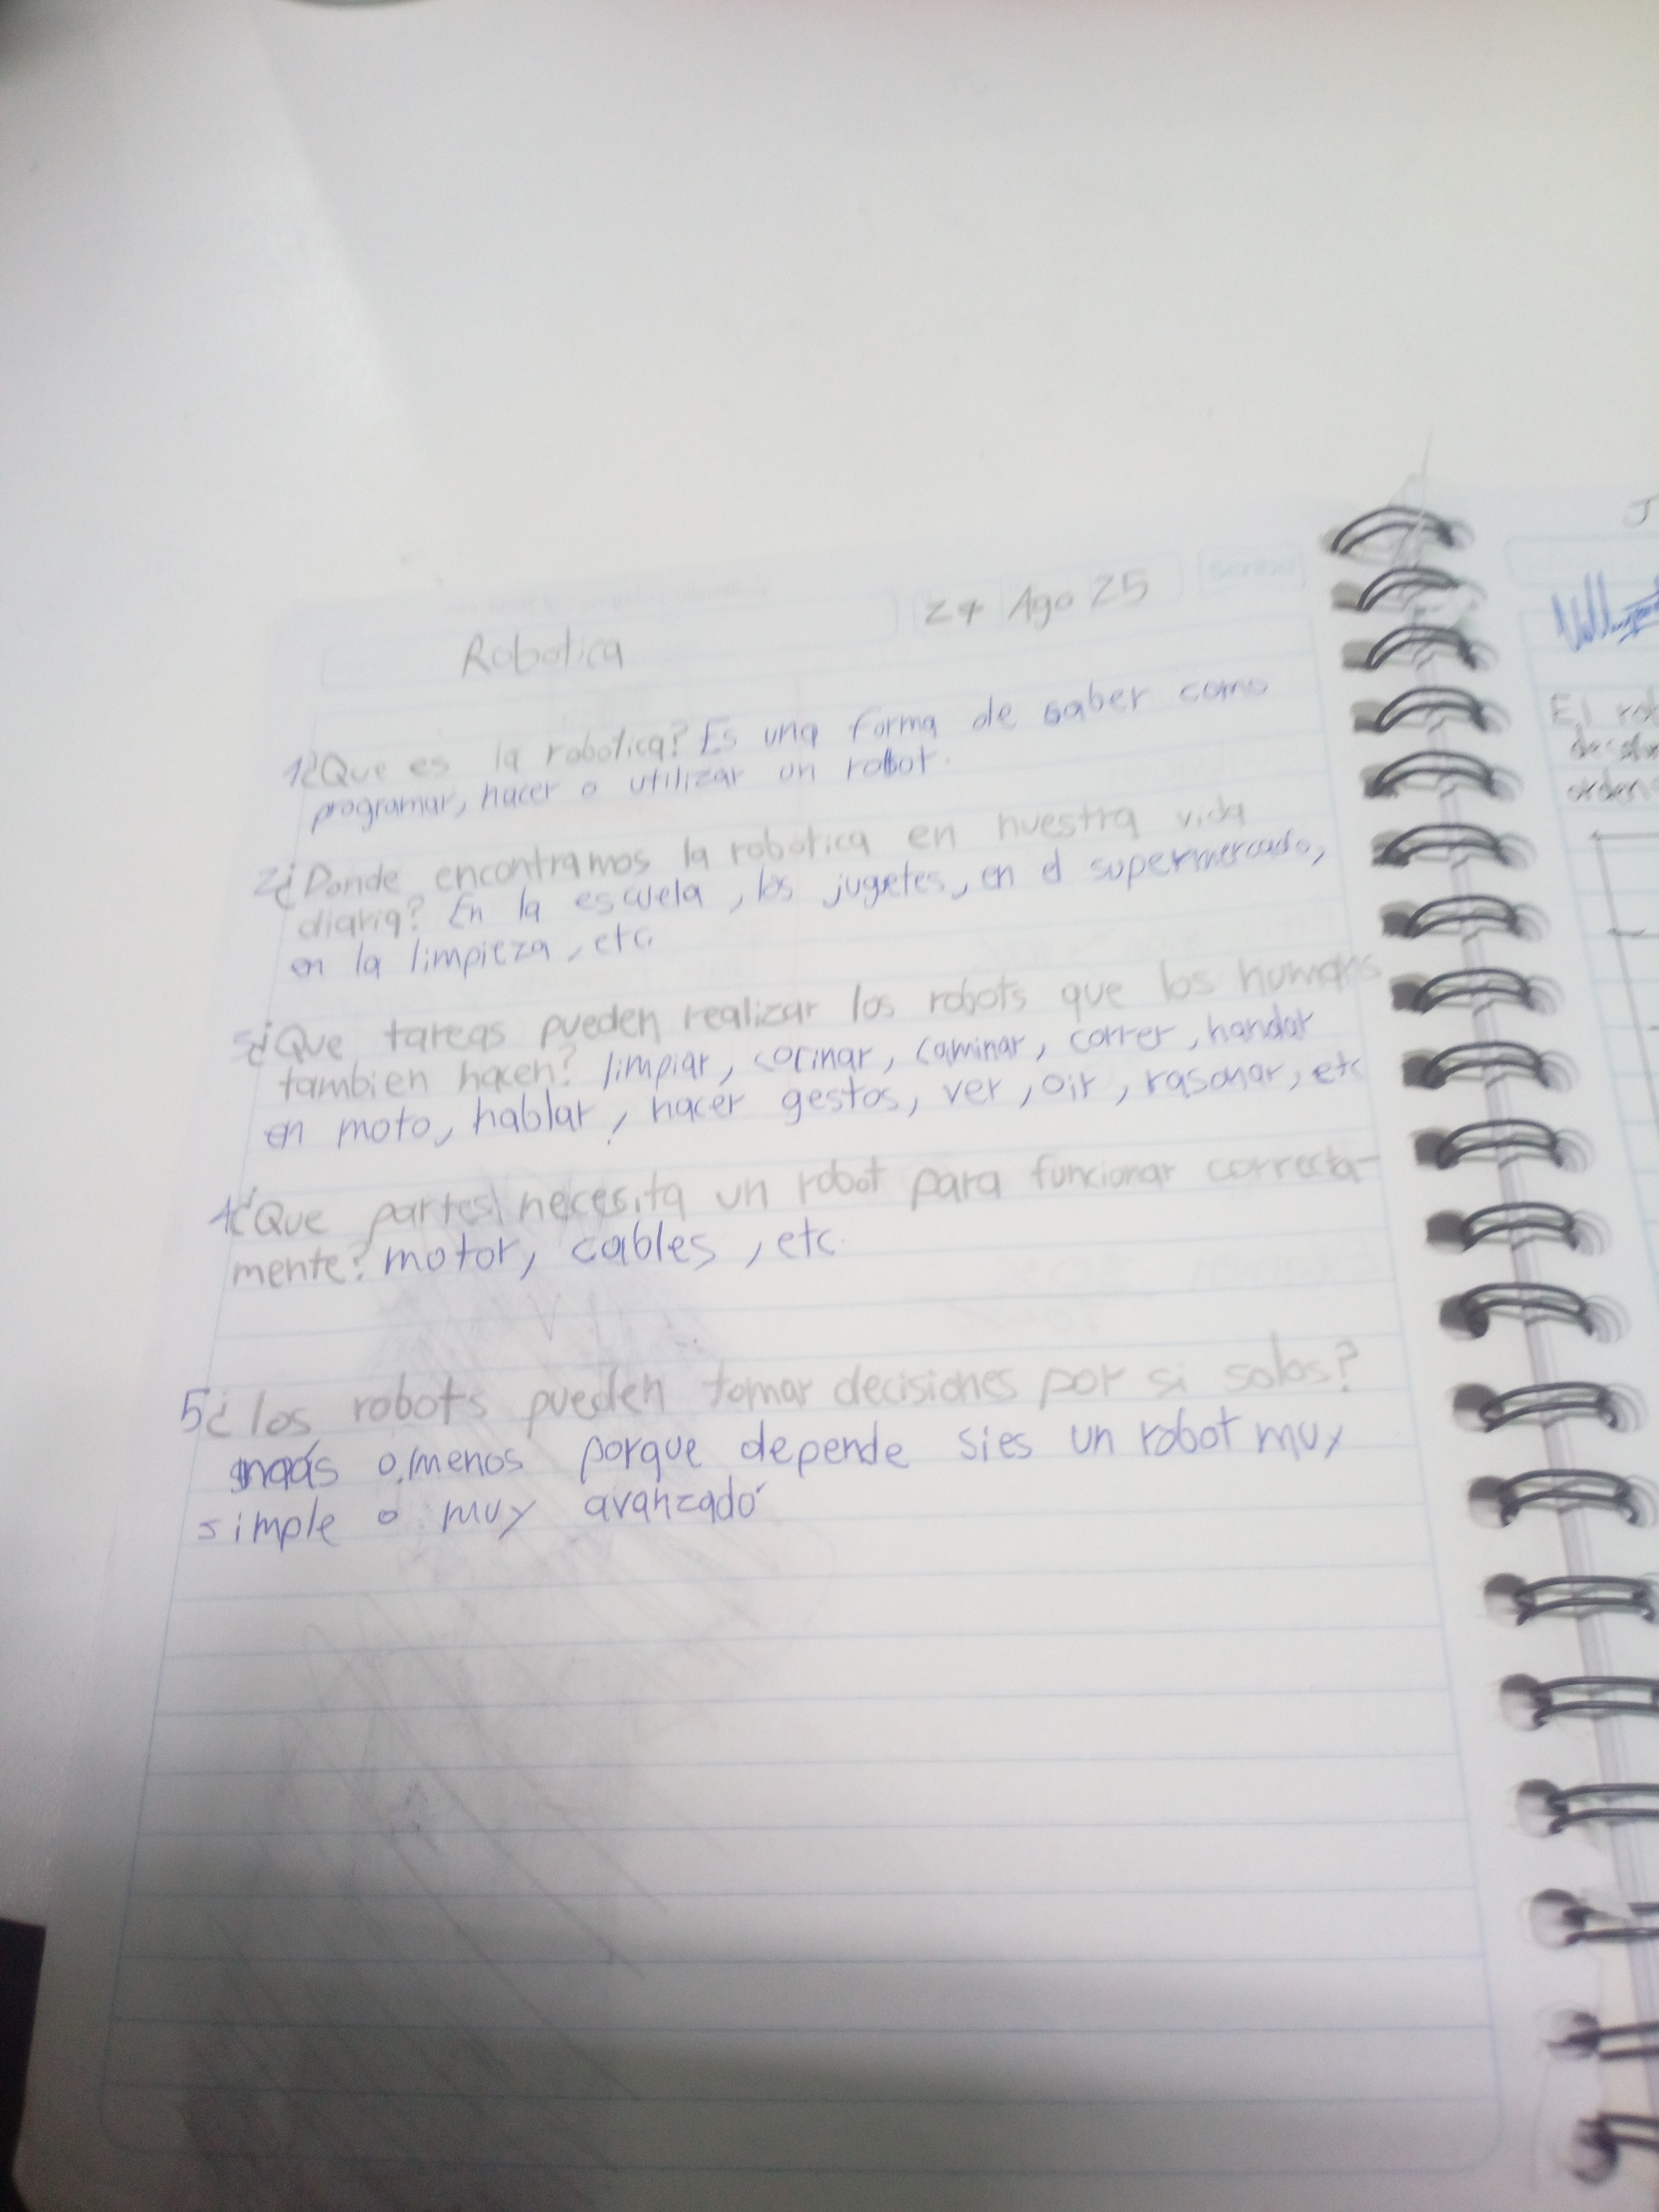 Robotica
27 Ago 25
1¿Que es la robotica? Es una forma de saber como
programar, hacer o utilizar un robot.
2¿Donde encontramos la robotica en nuestra vida
diaria? En la escuela, los jugetes, en el supermercado,
en la limpieza, etc.
3¿Que tareas pueden realizar los robots que los humanos
tambien hacen? limpiar, cocinar, caminar, correr, handar
en moto, hablar, hacer gestos, ver, oir, rasonar, etc
4¿Que partes necesita un robot para funcionar correcta-
mente? motor, cables, etc.
5¿los robots pueden tomar decisiones por si solos?
más o menos porque depende si es un robot muy
simple o muy avanzado
El
orden